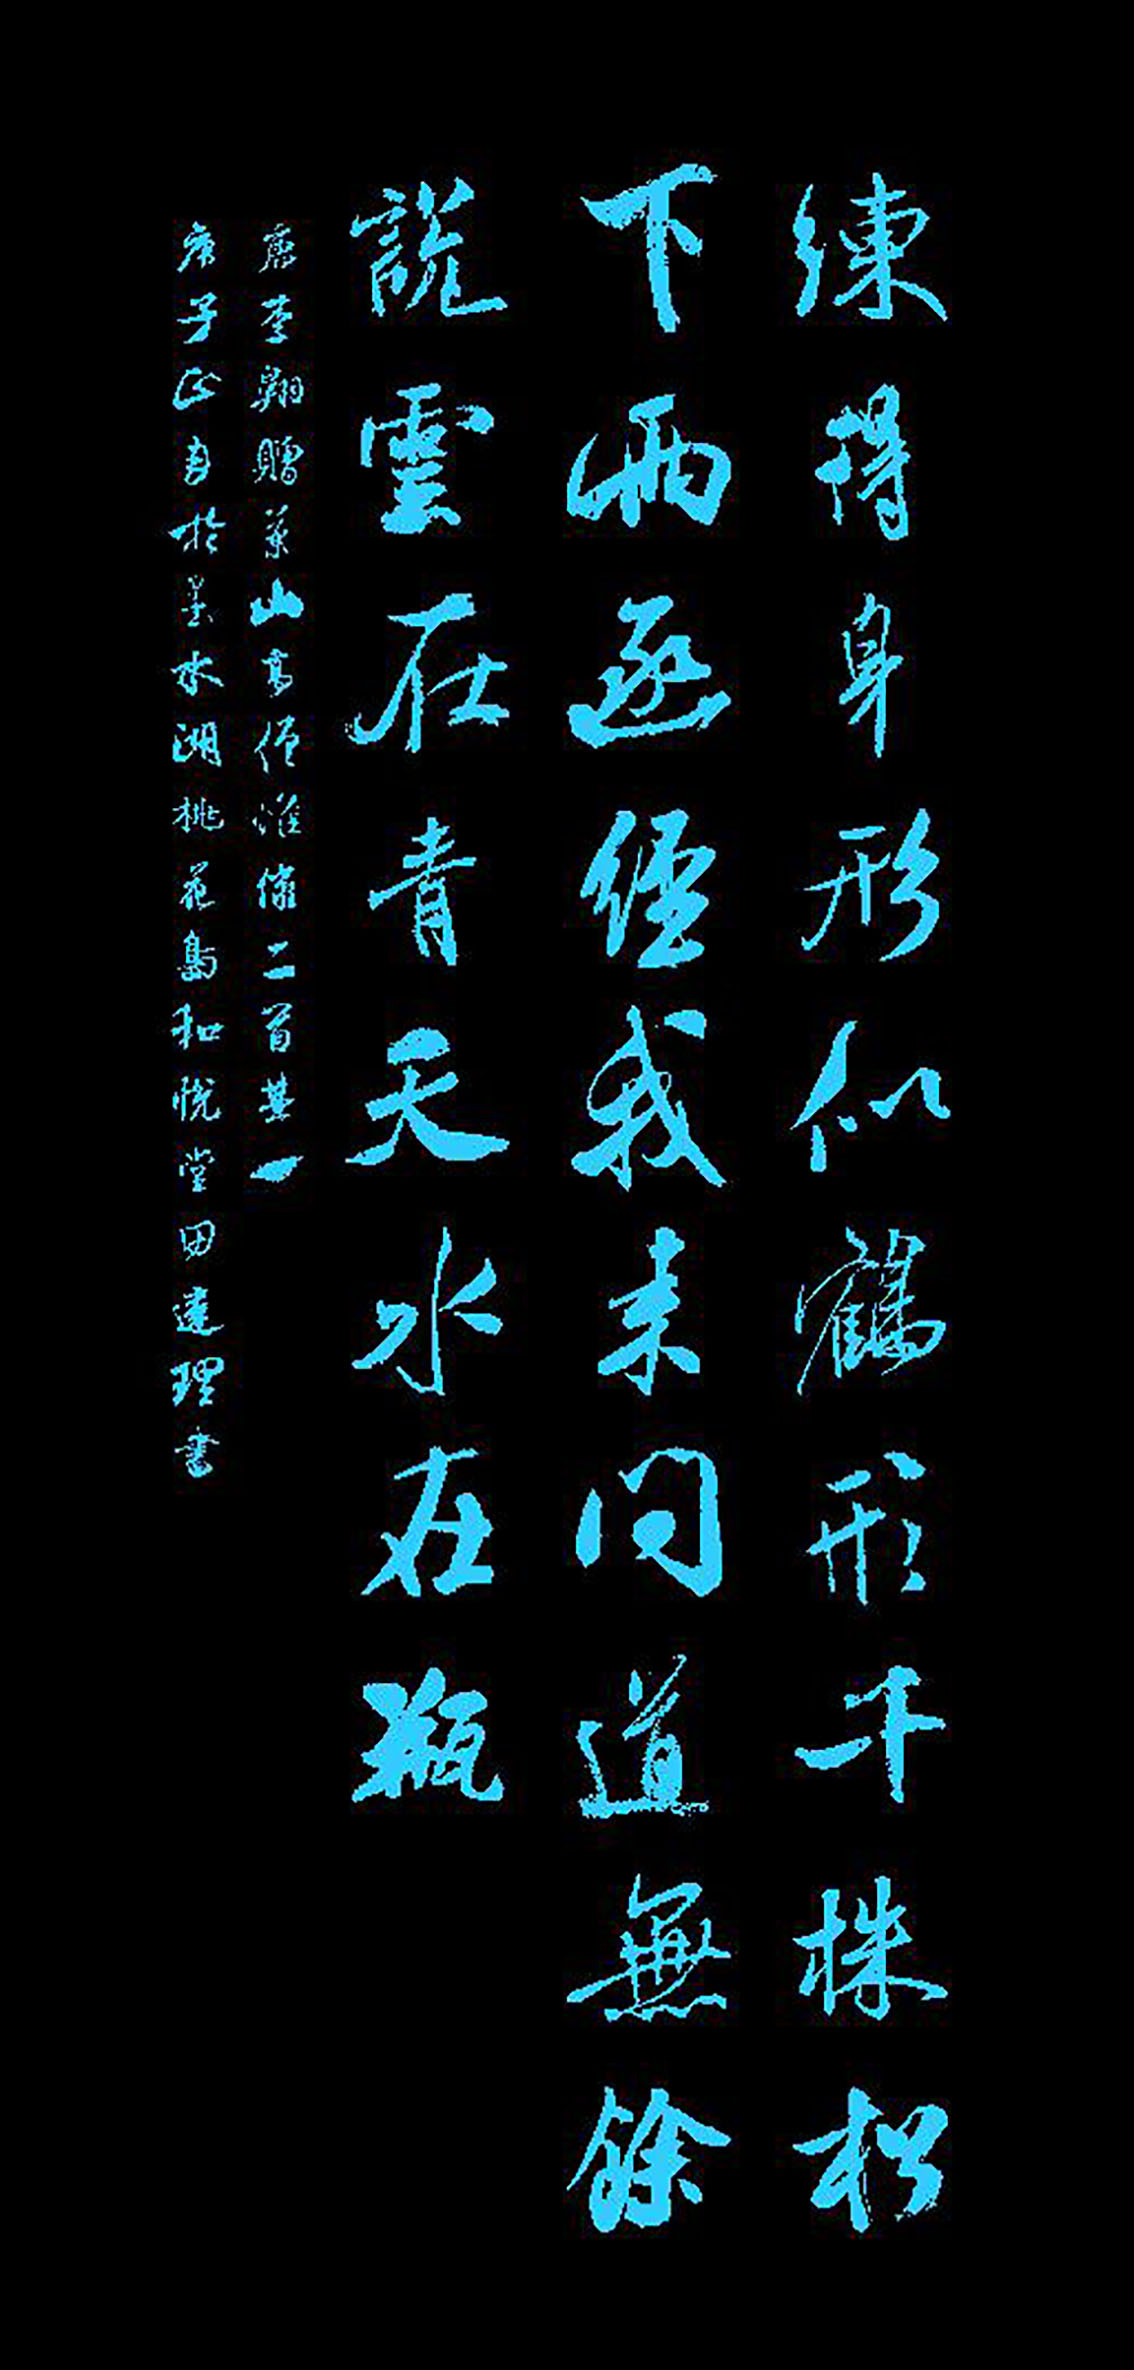 練得身形似鶴形千株松
下兩函經我來問道無餘
說雲在青天水在瓶
唐李翱贈藥山高僧惟儼二首其一
庚子正月於墨水湖桃花島和悅堂田達理書